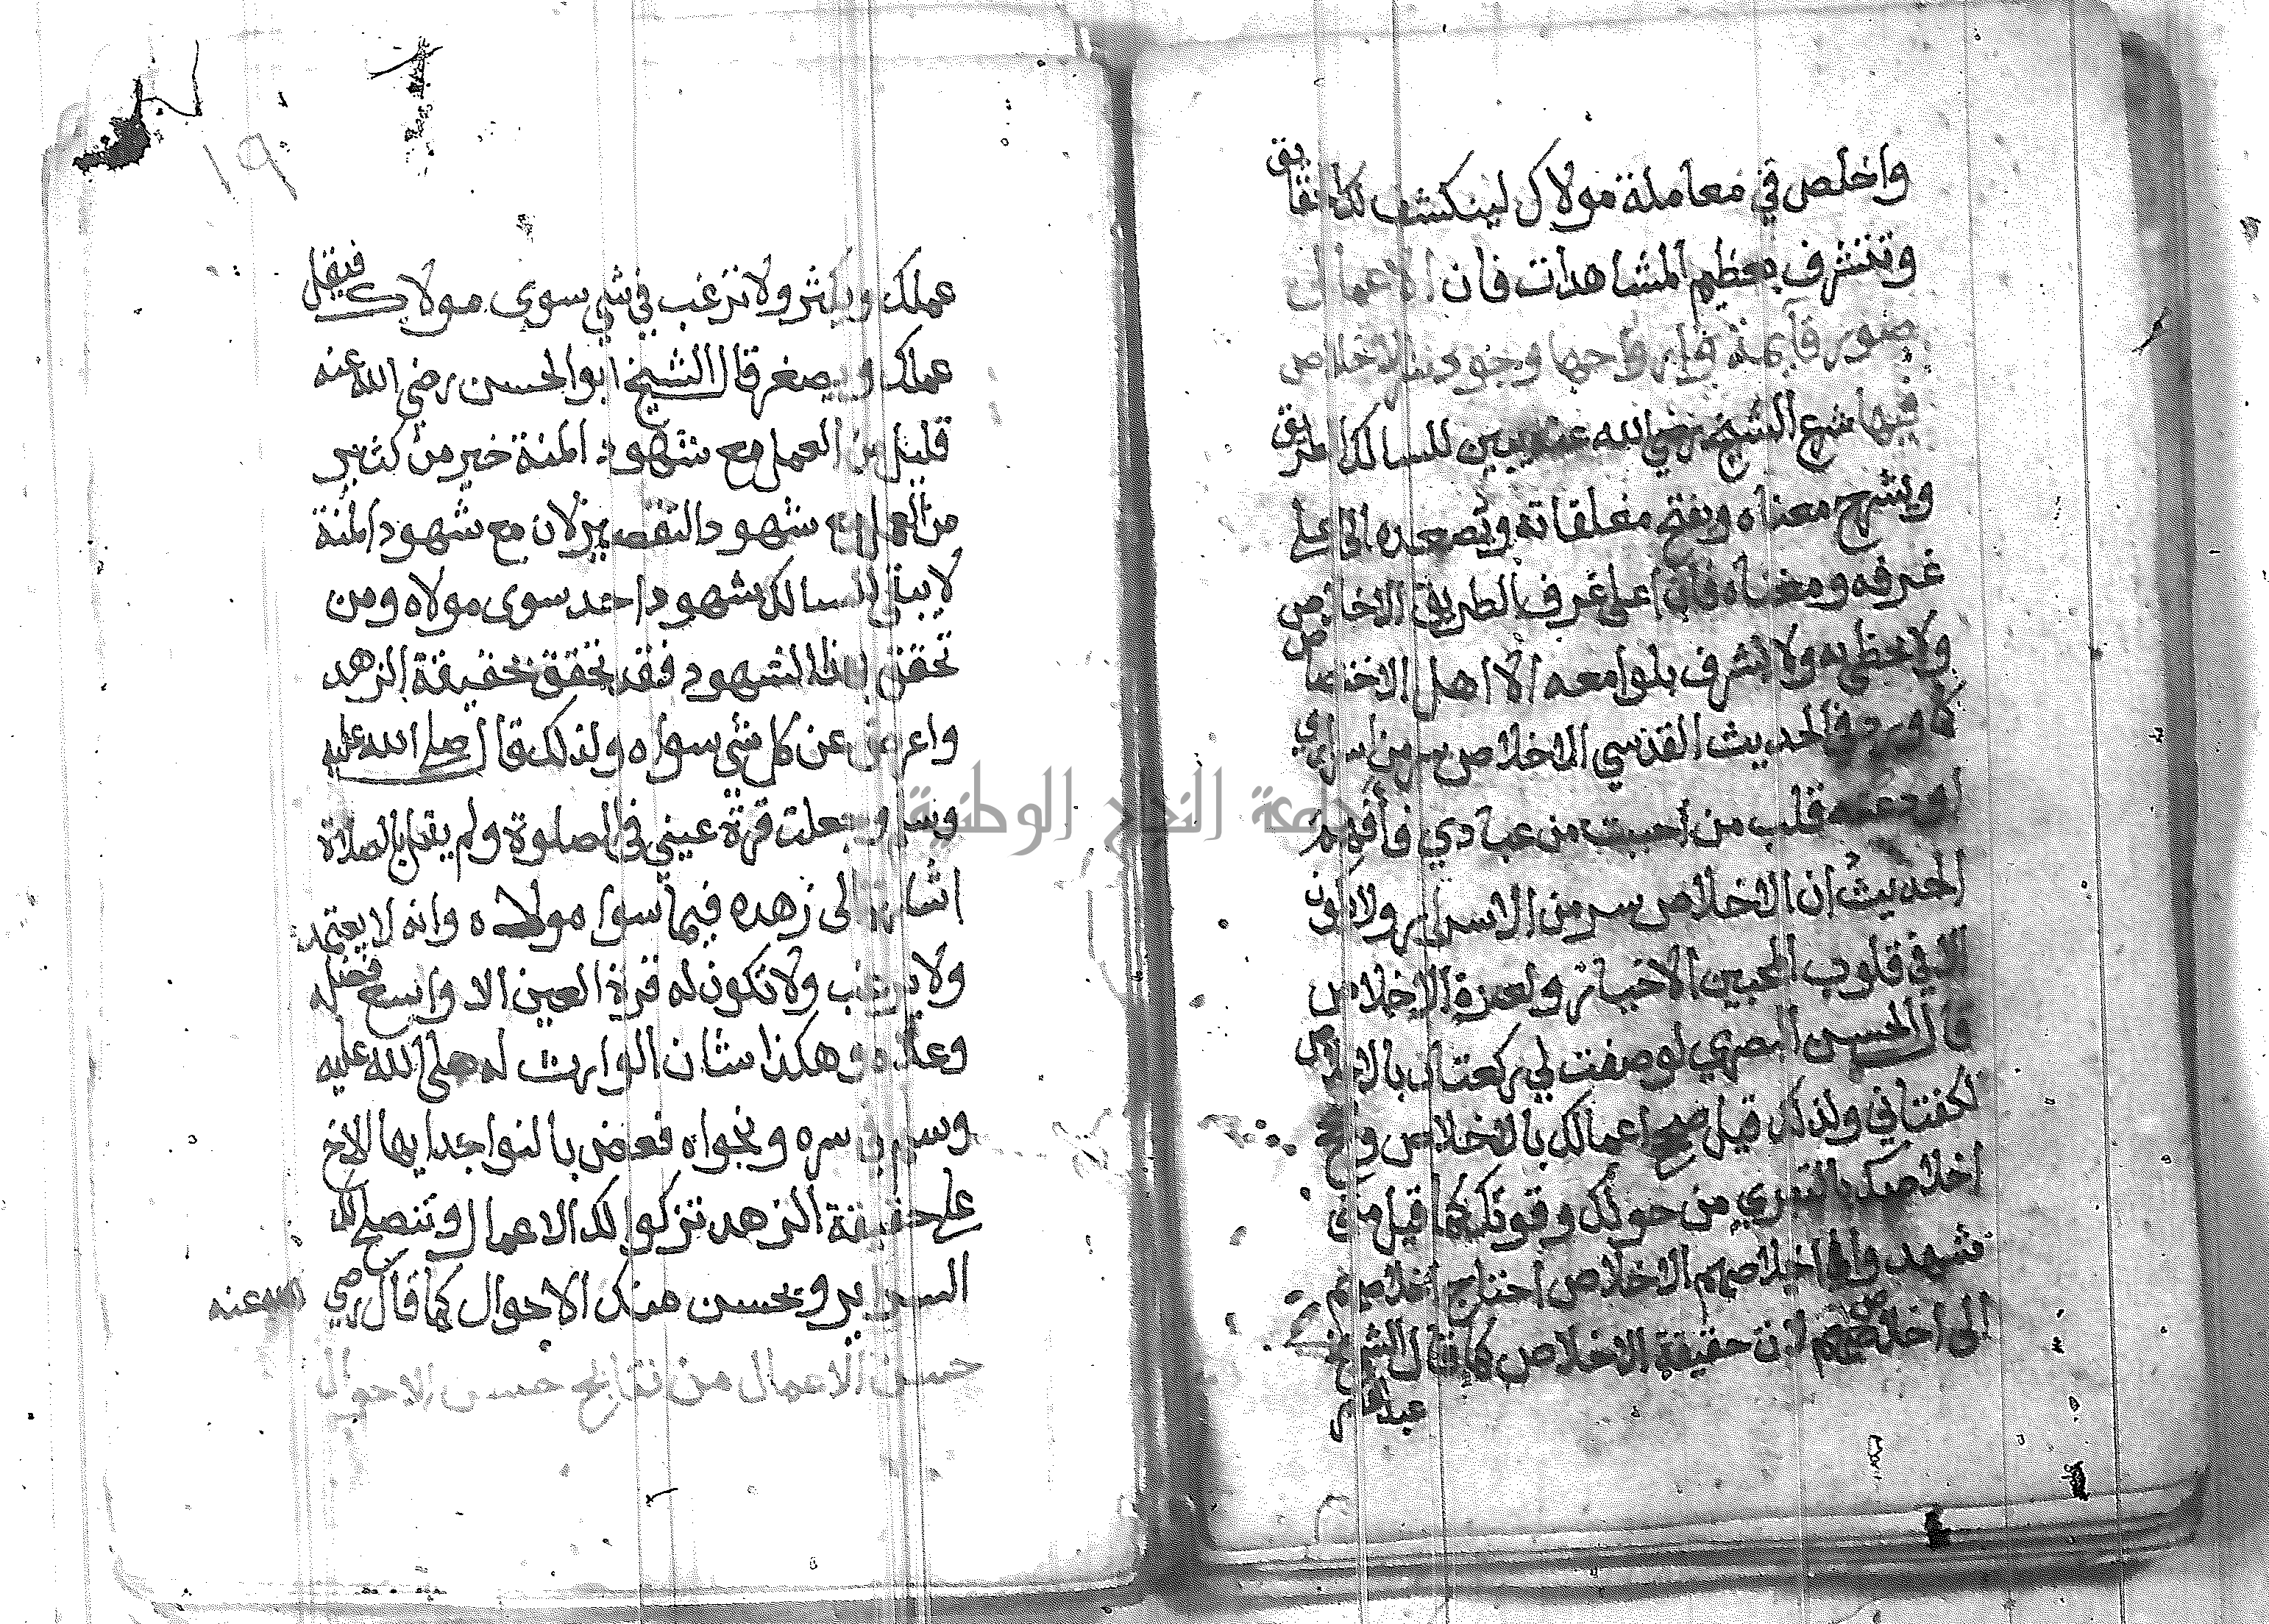 واخلص في معاملة مولاك لينكشف لك الحقايق
وتتشرف بعظيم المشاهدات فان الاعمال
صور قايمة وارواحها وجود سر الاخلاص
فيها شرع الشيخ رضي الله عنه يبين للسالك الطريق
ويشرح معناه ويفتح مغلقاته ويصعده الى اعلى
غرفه ومغناه فان اعلى غرف الطريق الاخلاص
ولا يحظى به ولا تشرف بلوامعه الا اهل الاختصاص
كما ورد في الحديث القدسي الاخلاص سر من اسراري
اودعته قلب من احببت من عبادي فافهم
الحديث ان الاخلاص سر من الاسرار ولا يكون
الا في قلوب المحبين الاخيار ولعزة الاخلاص
قال الحسن البصري لو صفت لي ركعتان بالاخلاص
لكفتاني ولذلك قيل صحح اعمالك بالاخلاص وصحح
اخلاصك بالتبري من حولك وقوتك كما قيل متى
شهدوا في اخلاصهم الاخلاص احتاج اخلاصهم
الى اخلاص لان حقيقة الاخلاص كما قال الشيخ
١٩
عملك ويكثر ولا ترغب في شي سوى مولاك فيقل
عملك ويصغر قال الشيخ ابو الحسن رضي الله عنه
قليل من العمل مع شهود المنة خير من كثير
من العمل مع شهود التقصير لان مع شهود المنة
لا يبقى للسالك شهود احد سوى مولاه ومن
تحقق بهذا الشهود فقد تحقق بحقيقة الزهد
واعرض عن كل شي سواه ولذلك قال صلى الله عليه
وسلم وجعلت قرة عيني في الصلوة ولم يقل بالصلاة
اشارة الى زهده فيما سوا مولاه وانه لا يعتمد
ولا يرغب ولا تكون له قرة العين الا واسع فضله
وعلاه وهكذا شان الوارث له صلى الله عليه
وسلم في سره ونجواه فعض بالنواجد ايها الاخ
على حقيقة الزهد تزكوا لك الاعمال وتنصلح لك
السراير وتحسن منك الاحوال كما قال رضي الله عنه
حسن الاعمال من نتايج حسن الاحوال
جامعة النجاح الوطنية